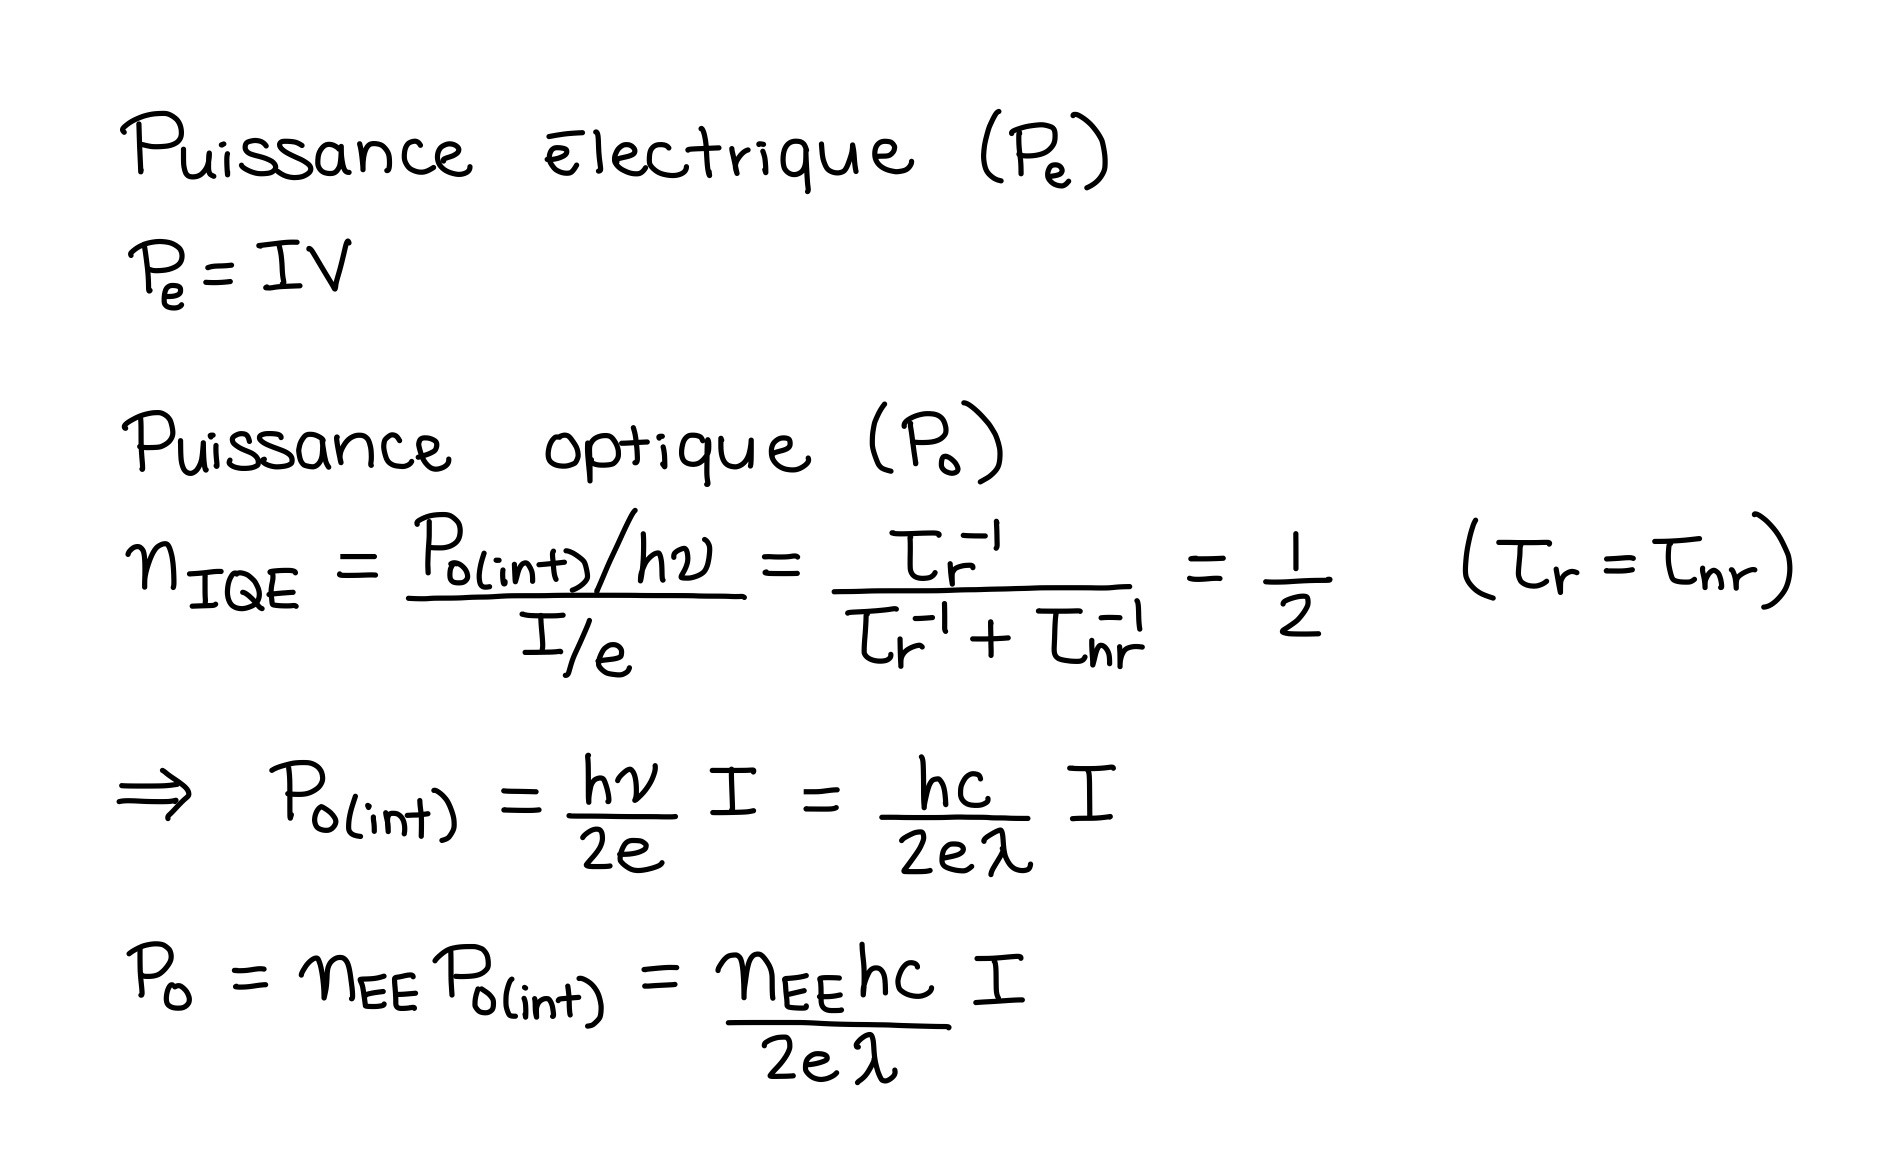 Puissance électrique (Pₑ)
Pₑ = IV
Puissance optique (Pₒ)
η_IQE = (P_o(int)/hν)/(I/e) = τ_r⁻¹/(τ_r⁻¹ + τ_nr⁻¹) = 1/2 (τ_r = τ_nr)
⇒ P_o(int) = hν/2e I = hc/2eλ I
Pₒ = η_EE P_o(int) = η_EE hc/2eλ I